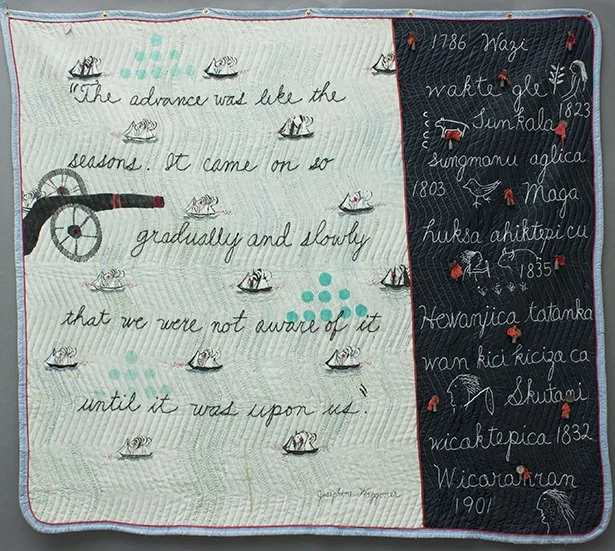 "The advance was like the
seasons. It came on so
gradually and slowly
that we were not aware of it
until it was upon us."
Josephine Waggoner
1786 Wazi
wakte gle
1823
Sunkala
sungmanu aglica
1803 Maga
huksa ahiktepi cu
1835
Hewanjica tatanka
wan kici kiciza ca
Skutani
wicaktepica 1832
Wicaranran
1901